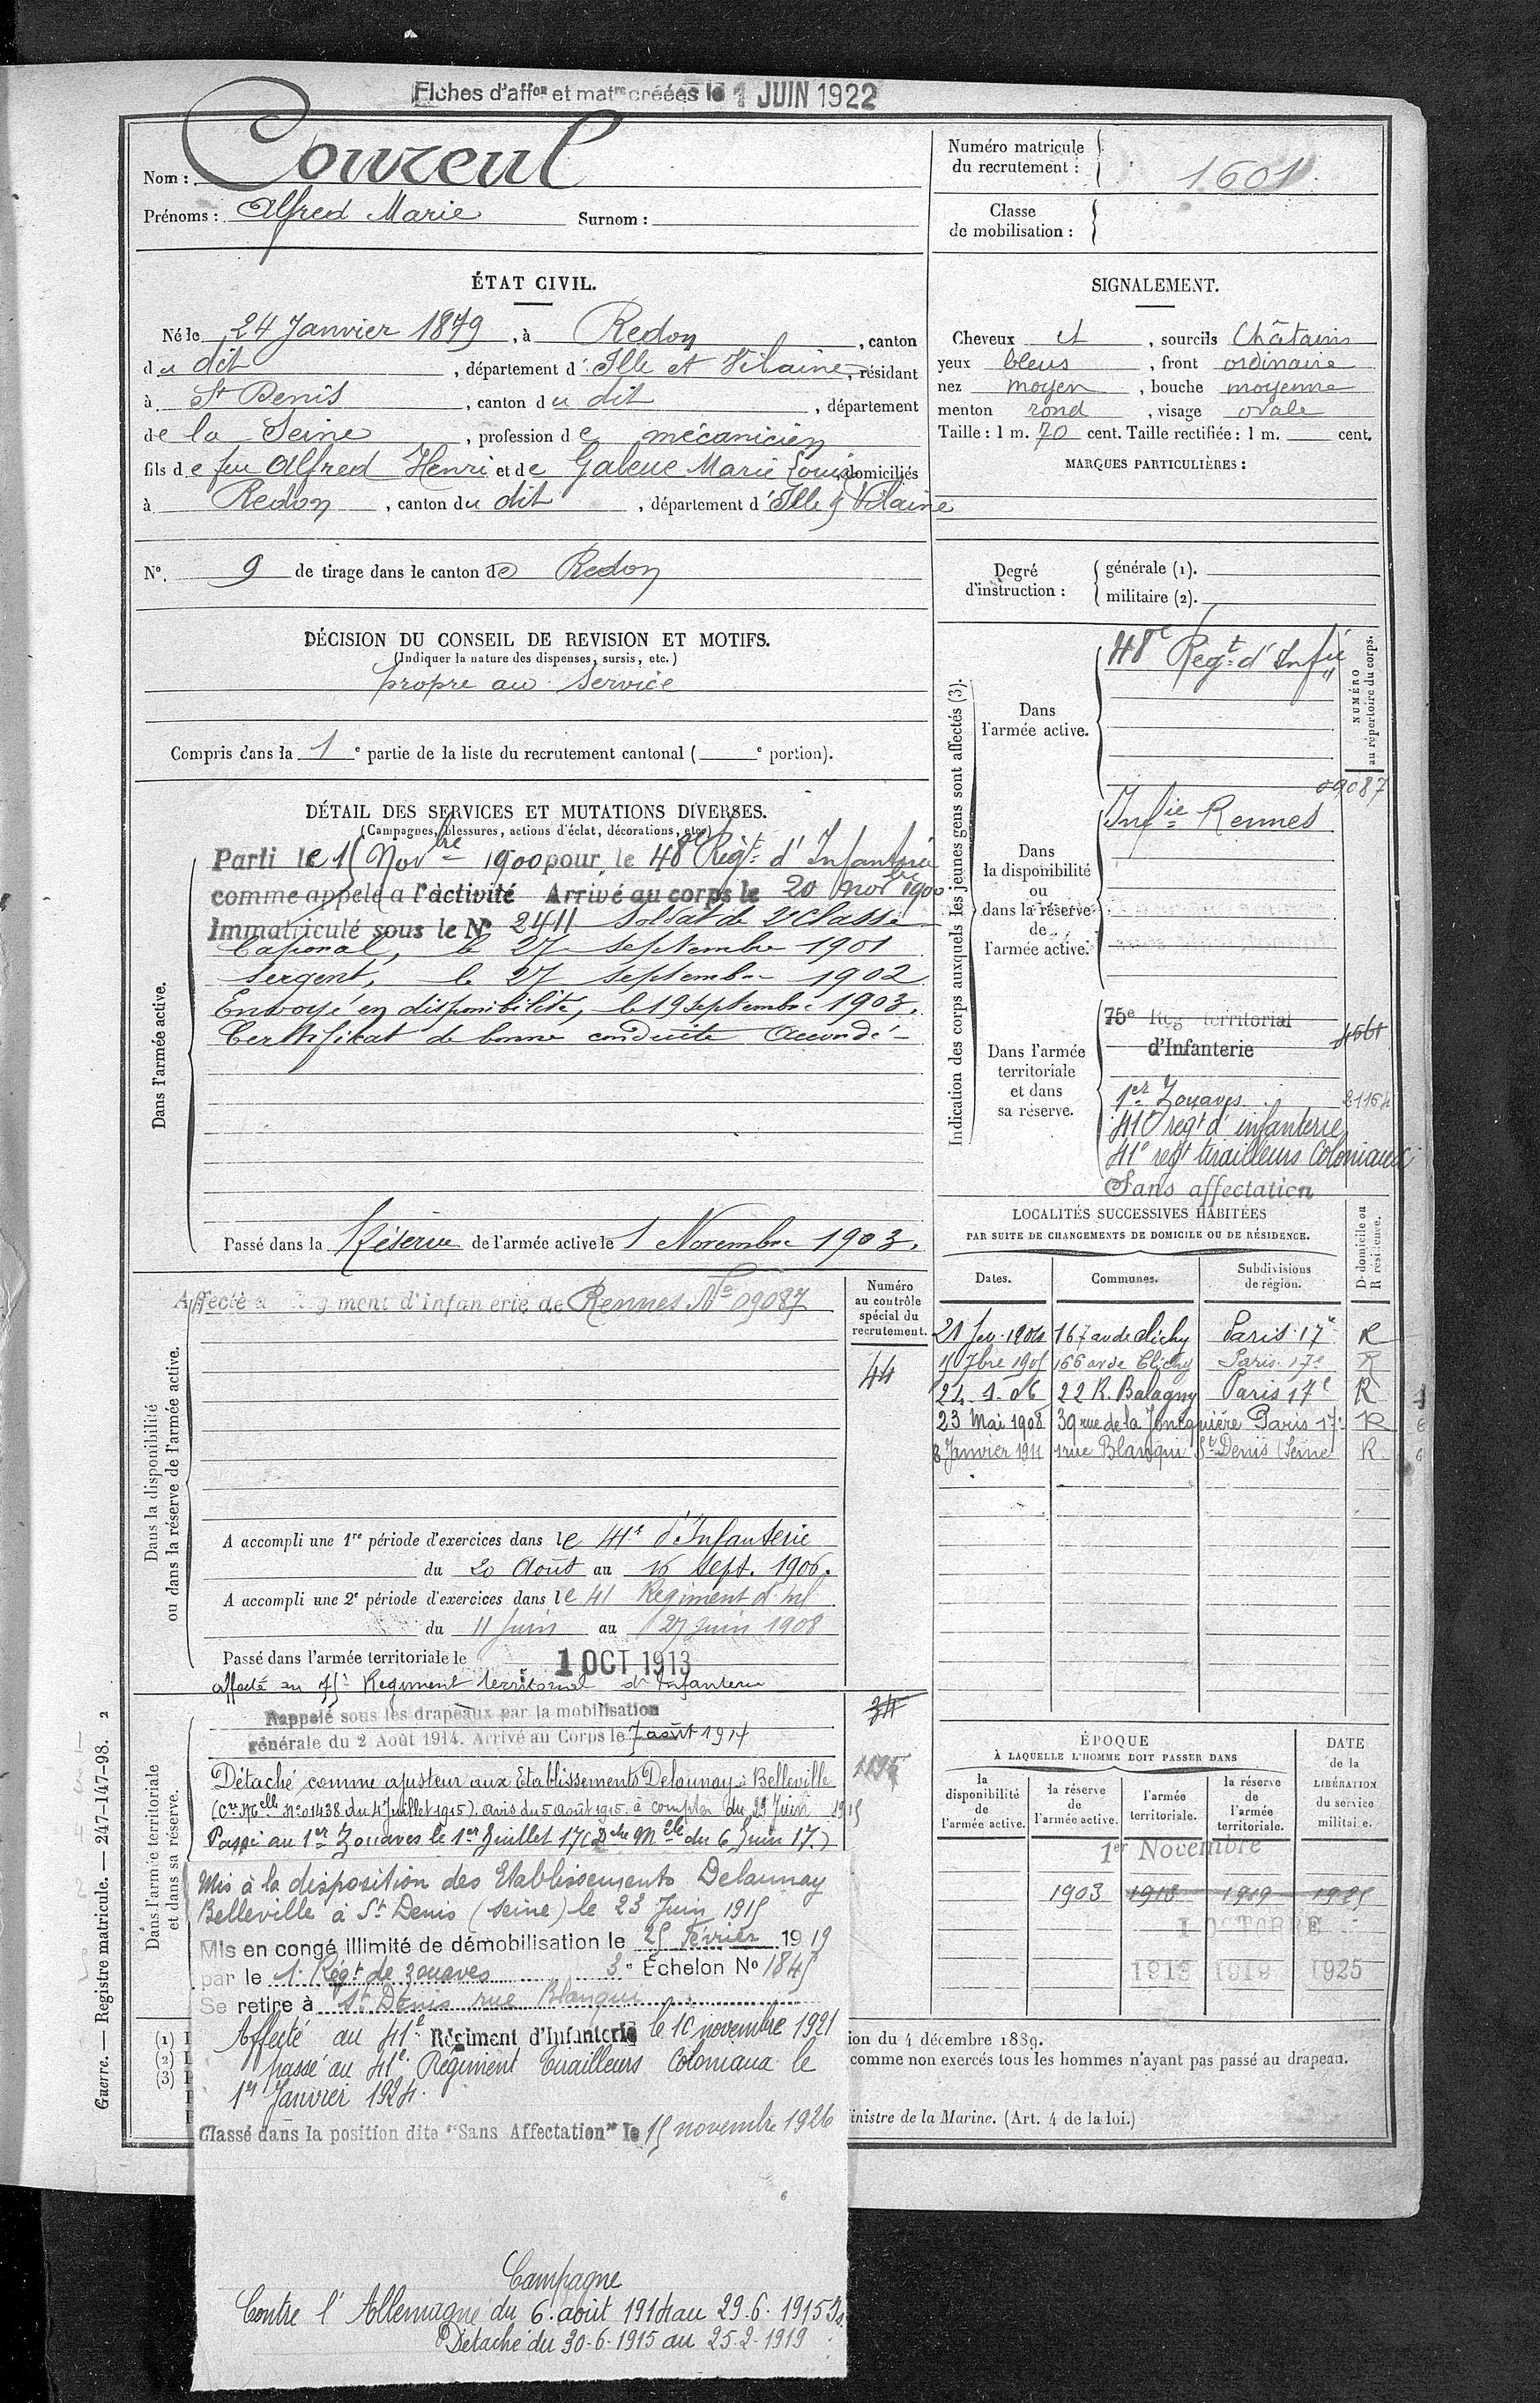 Fiches d'affon et matre créées le 1 JUIN 1922
Nom : Coureul
Prénoms : Alfred Marie Surnom :
Numéro matricule du recrutement : 1601
Classe de mobilisation :
ÉTAT CIVIL.
Né le 24 Janvier 1879, à Redon, canton
du dit, département d'Ille et Vilaine, résidant
à St Denis, canton du dit, département
de la Seine, profession de mécanicien
fils de feu Alfred Henri et de Galeue Marie Louise, domiciliés
à Redon, canton du dit, département d'Ille & Vilaine
N° 9 de tirage dans le canton de Redon
SIGNALEMENT.
Cheveux et, sourcils Châtains
yeux bleus, front ordinaire
nez moyen, bouche moyenne
menton rond, visage ovale
Taille : 1 m. 70 cent. Taille rectifiée : 1 m. cent.
MARQUES PARTICULIÈRES :
Degré d'instruction :
générale (1).
militaire (2).
DÉCISION DU CONSEIL DE REVISION ET MOTIFS.
(Indiquer la nature des dispenses, sursis, etc.)
propre au service
Compris dans la 1e partie de la liste du recrutement cantonal ( e portion).
DÉTAIL DES SERVICES ET MUTATIONS DIVERSES.
(Campagnes, blessures, actions d'éclat, décorations, etc.)
Dans l'armée active.
Parti le 15 Novbre 1900 pour le 48e Régt d'Infanterie
comme appelé a l'activité Arrivé au corps le 20 novbre 1900
Immatriculé sous le N° 2411 Soldat de 2e Classe
Caporal, le 27 septembre 1901
Sergent, le 27 septembre 1902
Envoyé en disponibilité, le 19 septembre 1903.
Certificat de bonne conduite Accordé -
Passé dans la Réserve de l'armée active le 1 Novembre 1903.
Indication des corps auxquels les jeunes gens sont affectés (3).
NUMÉRO au répertoire du corps.
Dans l'armée active.
48e Regt d'Infie
09087
Dans la disponibilité ou dans la réserve de l'armée active.
Infie Rennes
Dans l'armée territoriale et dans sa réserve.
75e Reg territorial
d'Infanterie
1er Zouaves
41e regt d'infanterie
41e regt tirailleurs Coloniaux
Sans affectation
LOCALITÉS SUCCESSIVES HABITÉES
PAR SUITE DE CHANGEMENTS DE DOMICILE OU DE RÉSIDENCE.
Dates. Communes. Subdivisions de région. D domicile ou R résidence.
21 fev. 1904 167 av de Clichy Paris 17e R
15 7bre 1905 166 av de Clichy Paris 17e R
24.1.06 22 R. Balagny Paris 17e R
23 Mai 1908 39 rue de la Jonquière Paris 17e R
8 Janvier 1911 1 rue Blanqui St Denis Seine R
Dans la disponibilité
ou dans la réserve de l'armée active.
Affecté a Régiment d'Infanterie de Rennes No 09087
Numéro au contrôle spécial du recrutement.
44
A accompli une 1re période d'exercices dans le 41e d'Infanterie
du 20 Août au 16 Sept. 1906.
A accompli une 2e période d'exercices dans le 41 Régiment d'Inf
du 11 Juin au 27 juin 1908
Passé dans l'armée territoriale le 1 OCT 1913
affecté au 75e Regiment territorial d'Infanterie
Dans l'armée territoriale
et dans sa réserve.
Rappelé sous les drapeaux par la mobilisation
générale du 2 Août 1914. Arrivé au Corps le 7 août 1914
Détaché comme ajusteur aux Etablissements Delaunay à Belleville
(Cre Melle No 01438 du 4 Juillet 1915). avis du 5 août 1915. à compter du 29 Juin 1915
Passé au 1er Zouaves le 1er Juillet 17 (Dche Melle du 6 Juin 17.)
Mis à la disposition des Etablissements Delaunay
Belleville à St Denis (seine) le 23 Juin 1915
Mis en congé illimité de démobilisation le 25 Février 1919
par le 1 Régt de zouaves 3e Echelon No 1845
Se retire à St Denis rue Blanqui
Affecté au 41e Régiment d'Infanterie le 10 novembre 1921
passé au 41e Régiment tirailleurs coloniaux le
1er Janvier 1924.
Classé dans la position dite "Sans Affectation" le 15 novembre 1926
Campagne
Contre l'Allemagne du 6. août 1914 au 29.6.1915
Détaché du 30-6-1915 au 25-2-1919
ÉPOQUE
À LAQUELLE L'HOMME DOIT PASSER DANS
la disponibilité de l'armée active.
la réserve de l'armée active.
l'armée territoriale.
la réserve de l'armée territoriale.
DATE de la LIBÉRATION du service militaire.
1er Novembre
1903 1913 1919 1925
1 OCTOBRE
1913 1919 1925
(1)
(2)
(3)
ion du 4 décembre 1889.
comme non exercés tous les hommes n'ayant pas passé au drapeau.
inistre de la Marine. (Art. 4 de la loi.)
Guerre. — Registre matricule. — 247-147-98. 2